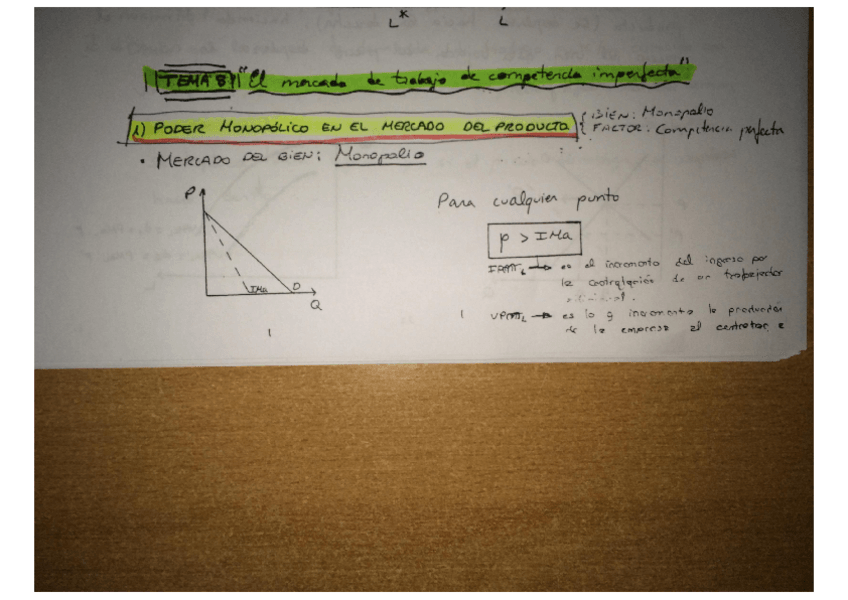 L* L
TEMA 8 "El mercado de trabajo de competencia imperfecta"
1) PODER MONOPÓLICO EN EL MERCADO DEL PRODUCTO. { BIEN: Monopolio
FACTOR: Competencia perfecta
• MERCADO DEL BIEN: Monopolio
P
Para cualquier punto
P > IMa
IPML → es el incremento del ingreso por
la contratación de un trabajador
IMa D
Q
VPML → es lo q incrementa la producción
de la empresa al contratar a